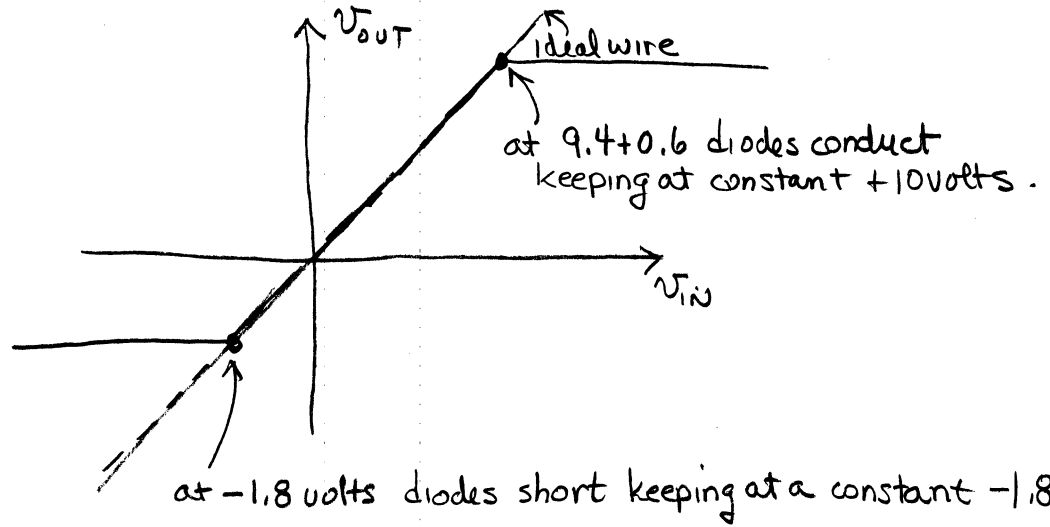 VOUT
ideal wire
at 9.4+0.6 diodes conduct
keeping at constant +10volts.
VIN
at -1.8 volts diodes short keeping at a constant -1.8